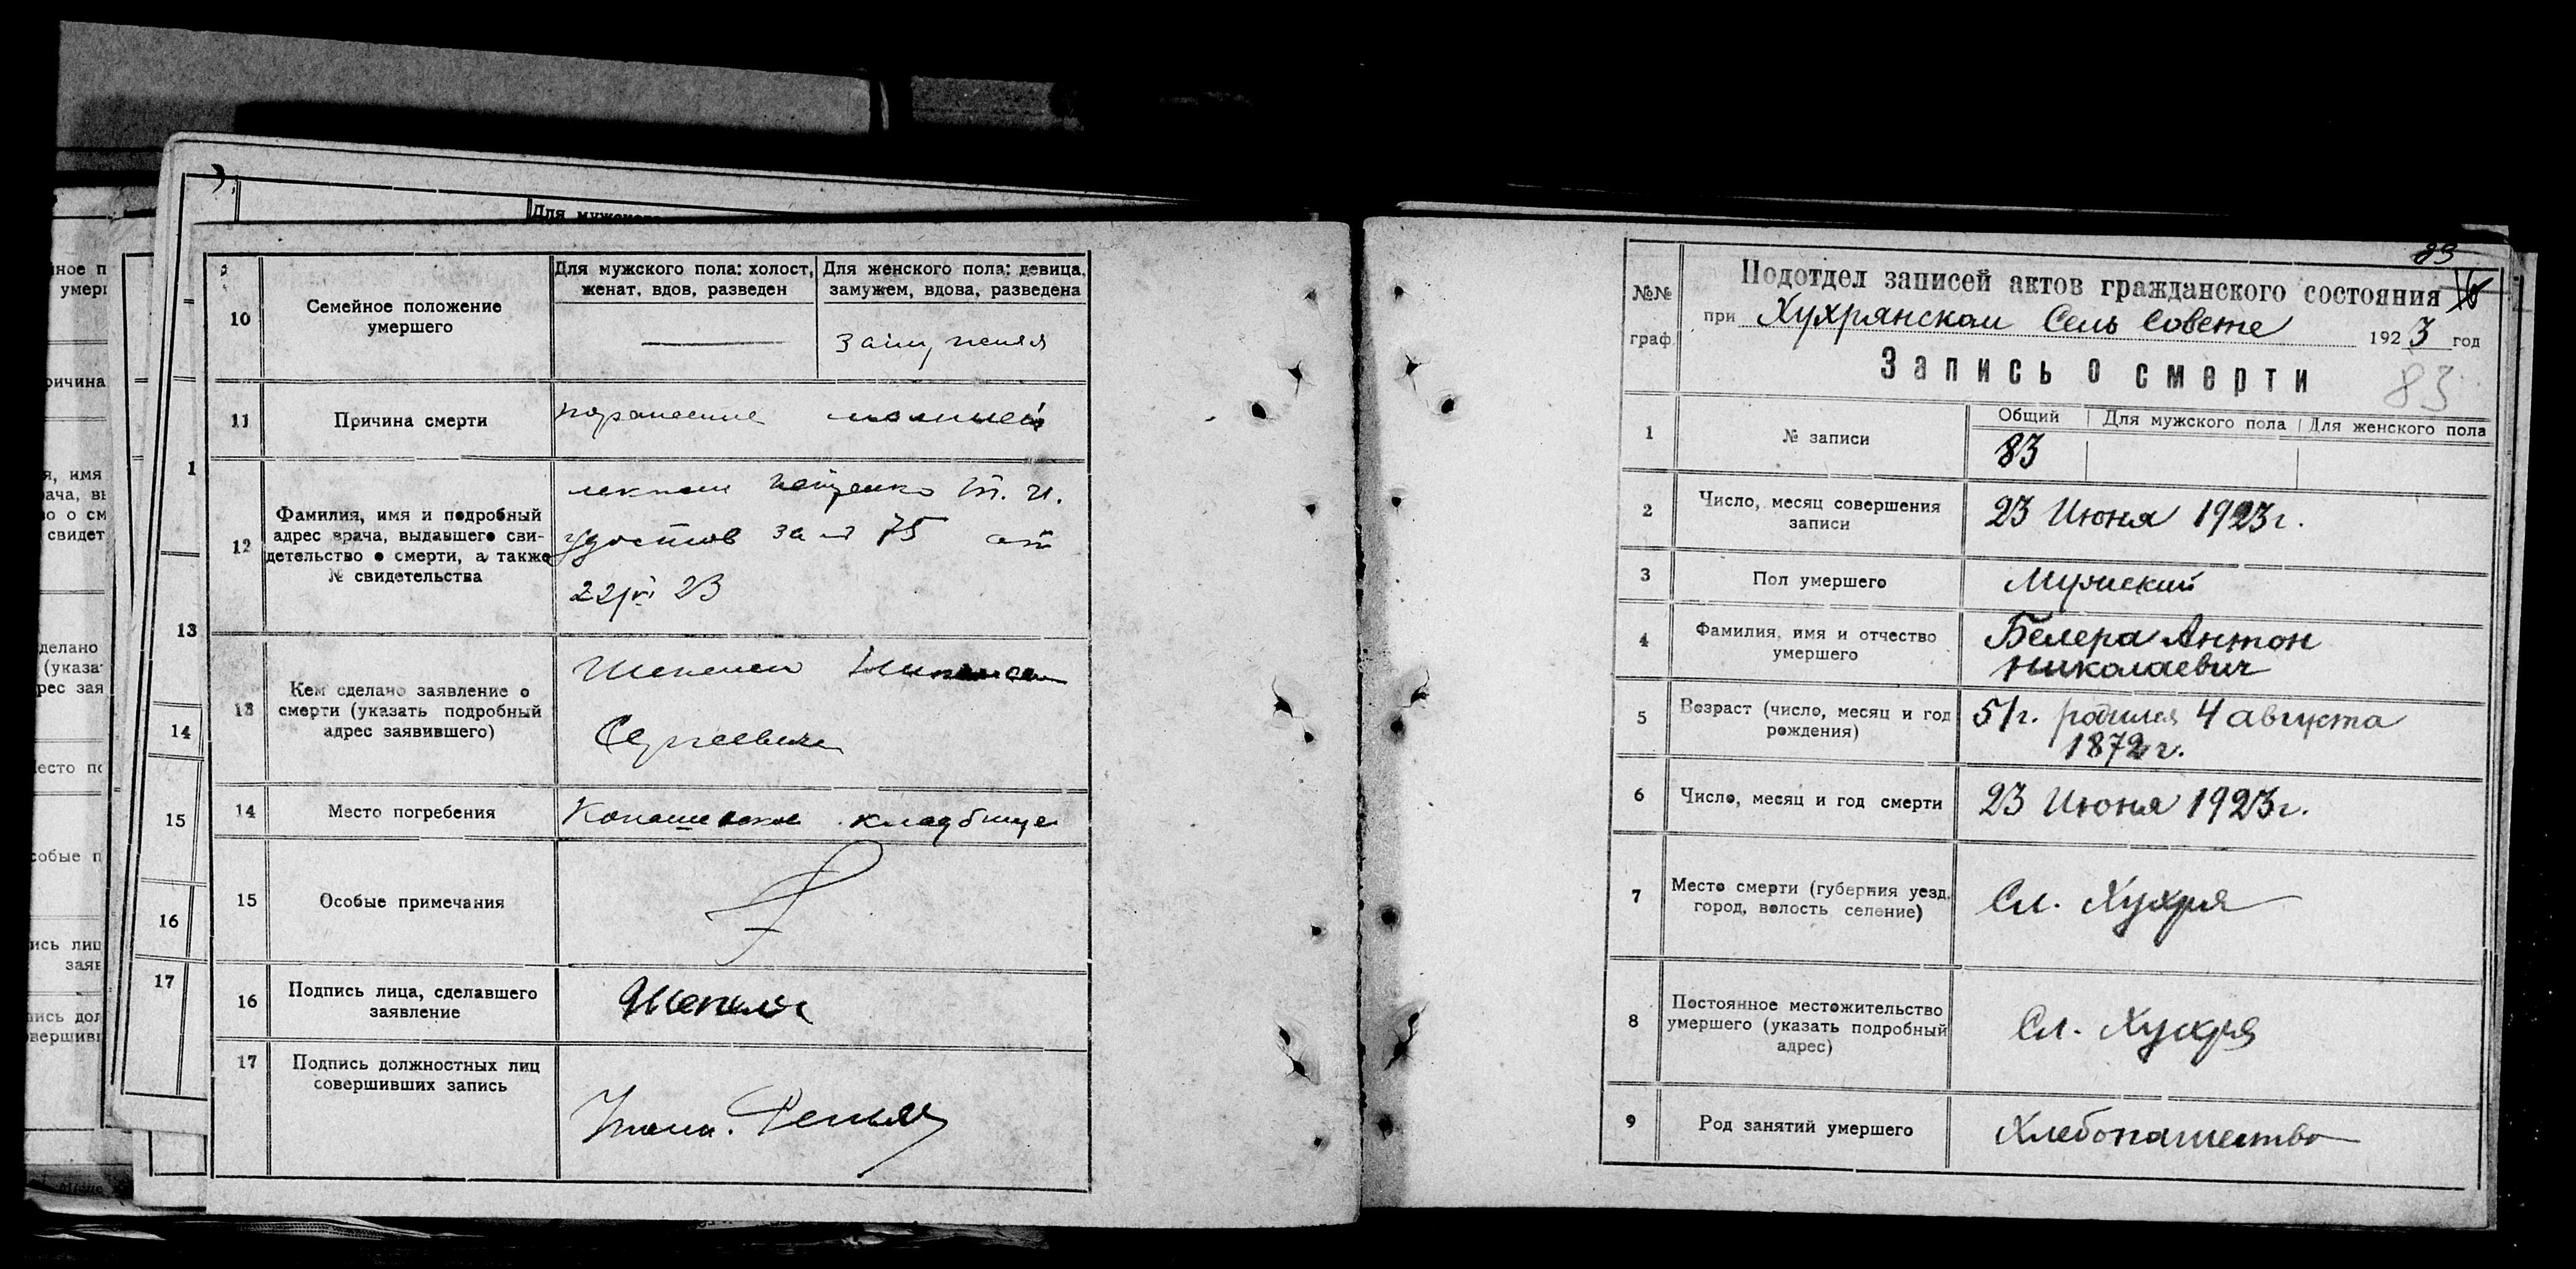 Для мужского
10
Семейное положение
умершего
Для мужского пола: холост,
женат, вдов, разведен
Для женского пола: девица,
замужем, вдова, разведена
замужняя
11
Причина смерти
поражение молнией
12
Фамилия, имя и подробный
адрес врача, выдавшего сви-
детельство о смерти, а также
№ свидетельства
лекпом
удостов за № 75 от
22/VI 23
13
Кем сделано заявление о
смерти (указать подробный
адрес заявившего)
Шепель
Сергеевич
14
Место погребения
кладбище
15
Особые примечания
16
Подпись лица, сделавшего
заявление
Шепель
17
Подпись должностных лиц
совершивших запись
1
13
14
15
16
17
83
№№
граф.
Подотдел записей актов гражданского состояния
при Хухрянском Сель Совете 1923 год
Запись о смерти
83
1
№ записи
Общий
Для мужского пола
Для женского пола
83
2
Число, месяц совершения
записи
23 Июня 1923г.
3
Пол умершего
Мужский
4
Фамилия, имя и отчество
умершего
Белера Антон
Николаевич
5
Возраст (число, месяц и год
рождения)
51г. родился 4 августа
1872г.
6
Число, месяц и год смерти
23 Июня 1923г.
7
Место смерти (губерния уезд,
город, волость селение)
Сл. Хухря
8
Постоянное местожительство
умершего (указать подробный
адрес)
Сл. Хухря
9
Род занятий умершего
Хлебопашество